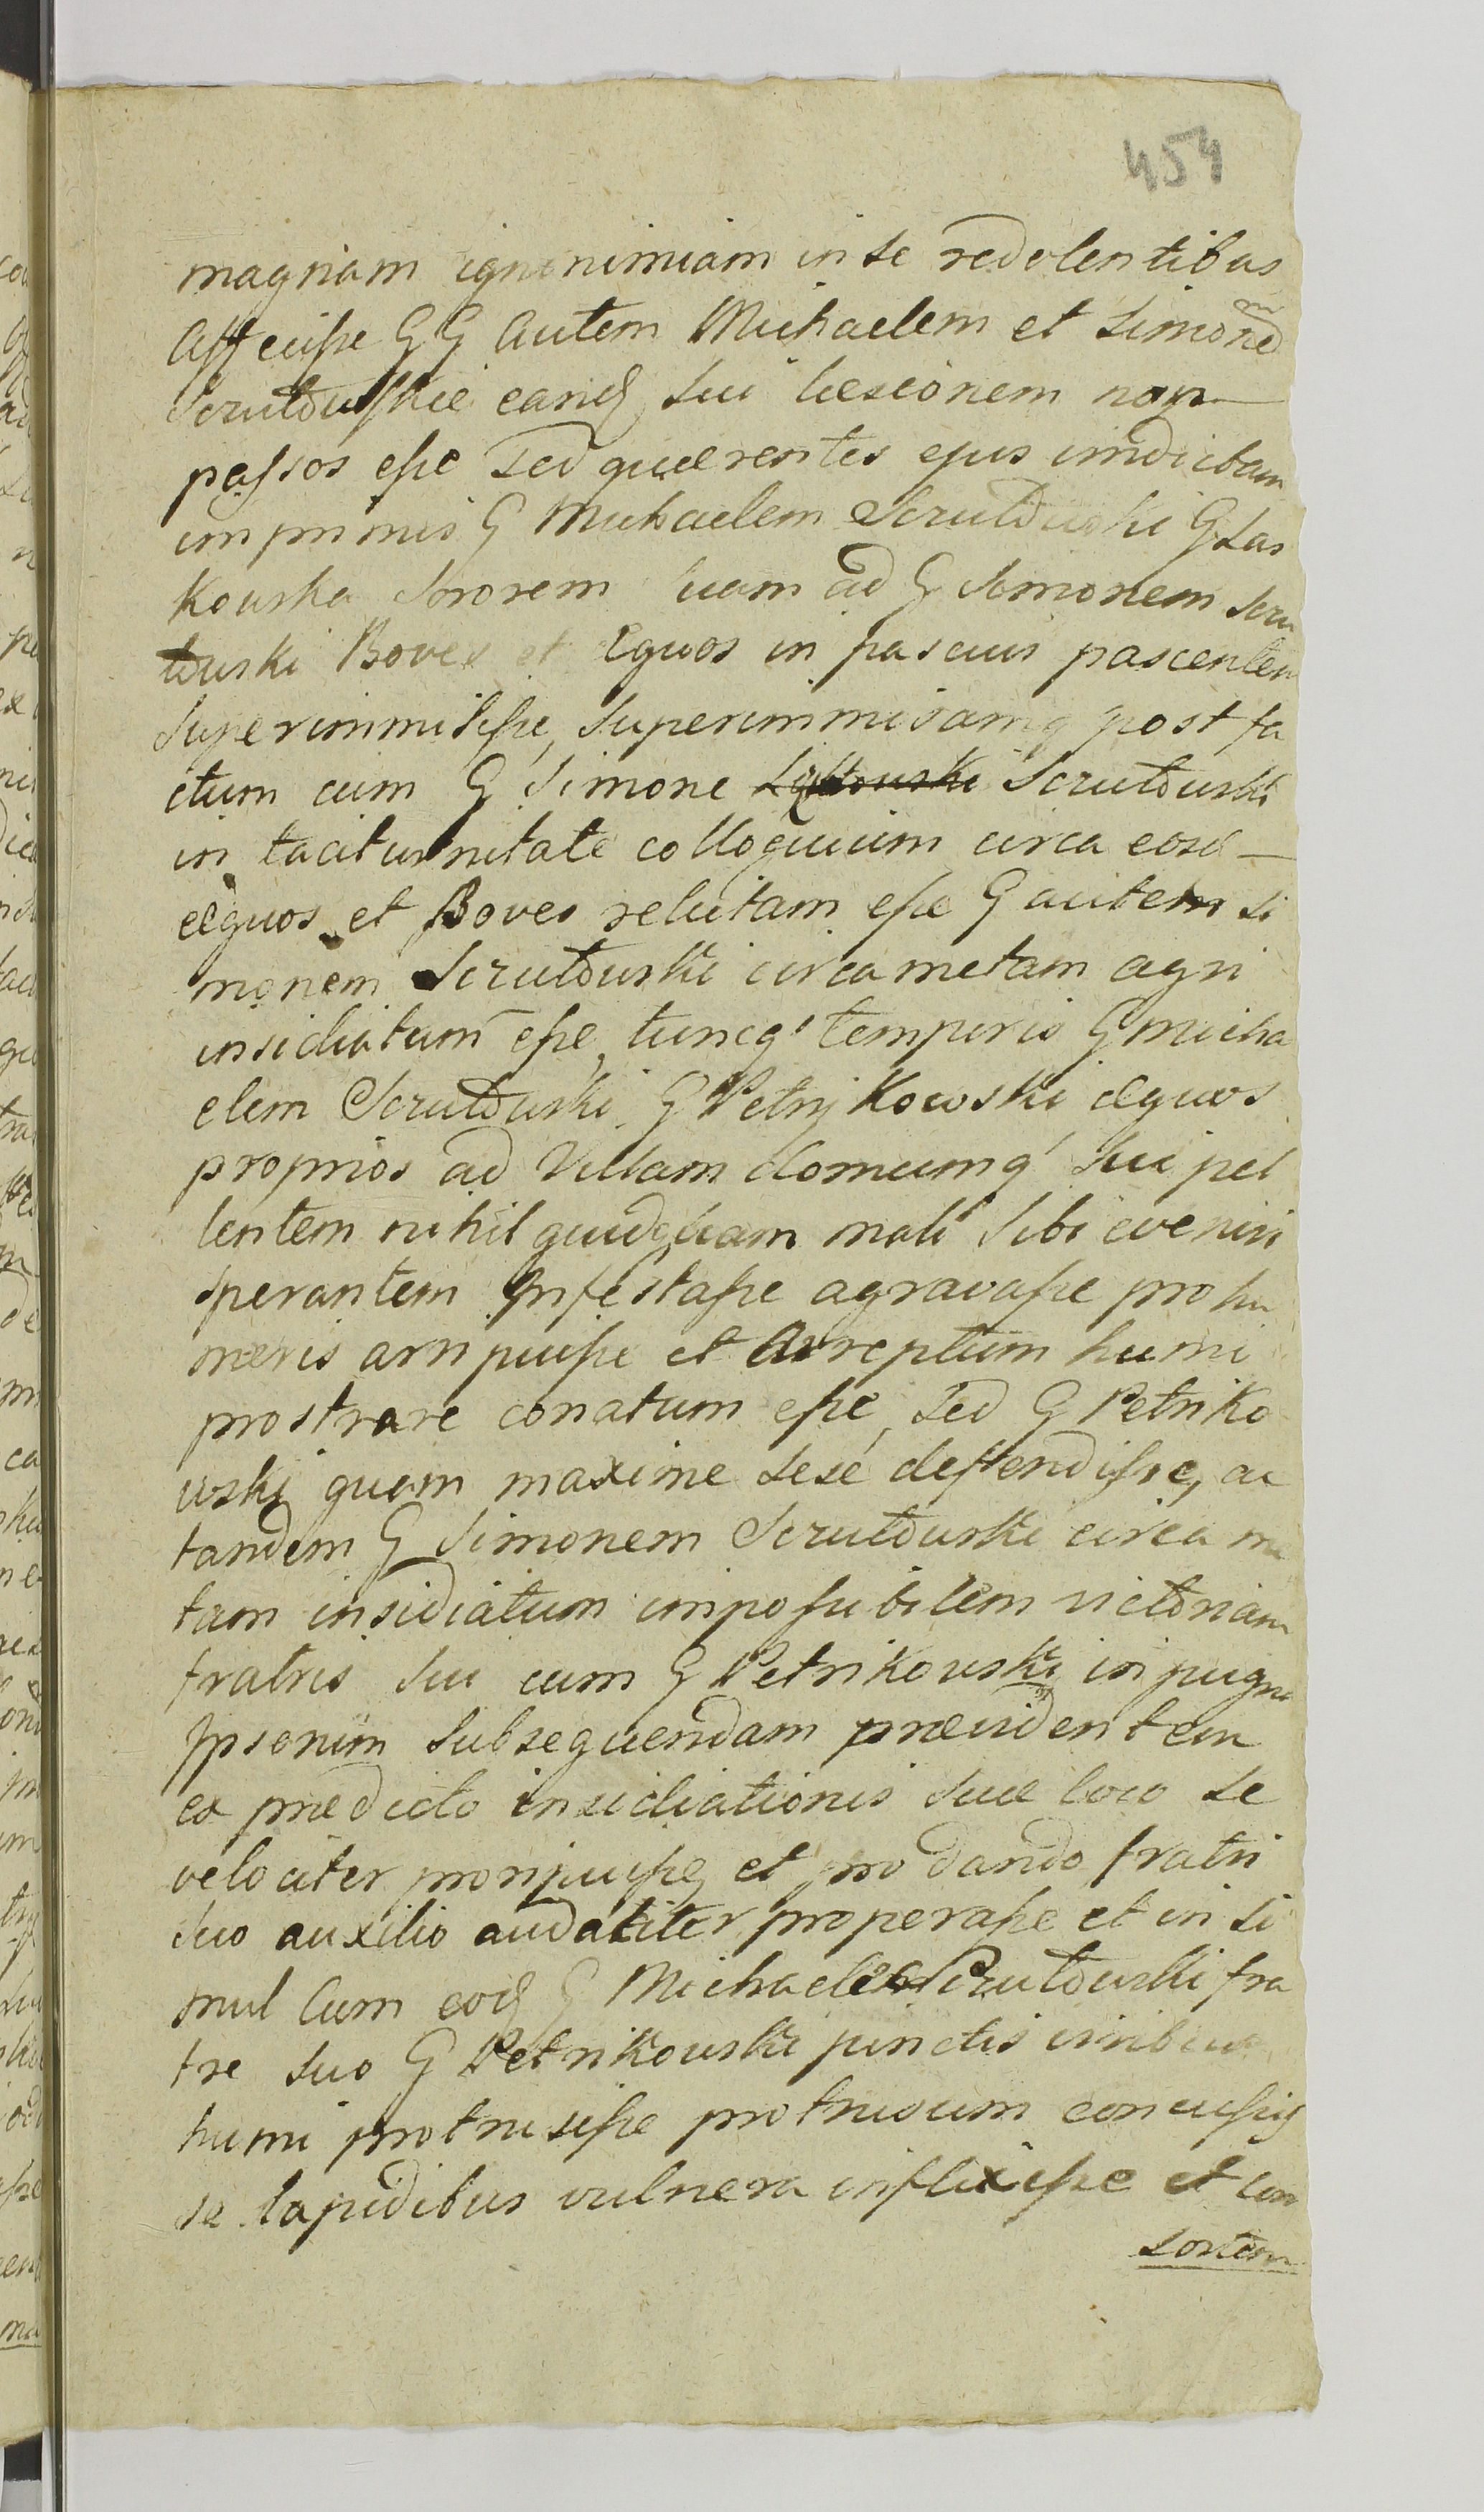 454
magnam ignominiam in se redolentibus
Affecisse G G Autem Michaelem et Simonem
Scrutowskie eand. sui læsionem non
passos esse Sed quærentes ejus vindictam
imprimis G Michaelem Scrutowski G Las
kowska Sororem suam ad G Simonem Scru
towski Boves et Equos in pascuis pascentem
Superimmisisse, Superimmisamq post fa
ctum cum G Simone Scrutowski
in taciturnitate colloquium circa eosd
equos et Boves relictam esse G autem Si
monem Scrutowski circa metam agri
insidiatum esse, tuncq' temporis G Micha
elem Scrutowski G Petrykowski equos
proprios ad Villam domumq' sui pel
lentem nihil quidquam mali sibi eveniri
sperantem Infestasse agravasse pro hu
meris arripuisse et Arreptum humi
prostrare conatum esse, Sed G Petriko
wski quam maxime sese deffendisse, ac
tandem G Simonem Scrutowski circa me
tam insidiatum impossibilem victoriam
fratris sui cum G Petrikowski in pugna
Ipsorum subsequendam prævidentem
ex prædicto insidiationis suæ loco se
velociter proripuisse, et pro dando fratri
suo auxilio audaciter properasse et in si
mul Cum eod G Michaele Scrutowski fra
tre suo G Petrikowski junctis viribus
humi protrusisse protrusum concussis
se lapidibus vulnera inflixisse et con
sortem